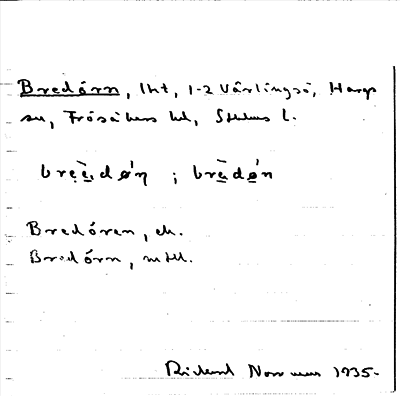 Bredörn, lht, 1-2 Vårlingsö, Hargs
sn, Frösåkers hd, Sthlms l.
breadǿn ; brædǿn
Bredören, ek.
Bredörn, mtbl.
Rickard Norrman 1935.